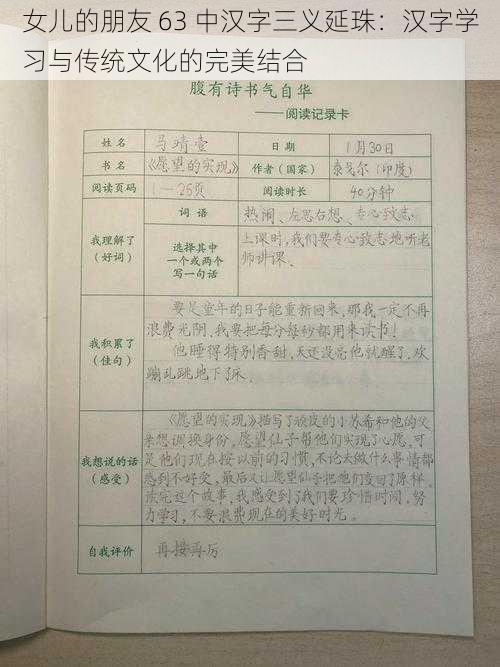 女儿的朋友 63 中汉字三义延珠：汉字学
习与传统文化的完美结合
腹有诗书气自华
——阅读记录卡
姓名 马靖壹 日期 1月30日
书名 《愿望的实现》 作者（国家） 泰戈尔（印度）
阅读页码 1—25页 阅读时长 40分钟
我理解了
（好词）
词语 热闹、左思右想、专心致志
选择其中
一个或两个
写一句话
上课时，我们要专心致志地听老
师讲课、
我积累了
（佳句）
要是童年的日子能重新回来，那我一定不再
浪费光阴，我要把每分每秒都用来读书！
他睡得特别香甜，天还没亮他就醒了．欢
蹦乱跳地下了床．
我想说的话
（感受）
《愿望的实现》描写了顽皮的小苏希和他的父
亲想调换身份，愿望仙子帮他们实现了心愿，可
是他们现在按以前的习惯，不论去做什么事情都
感到不好受，最后又让愿望仙子把他们变回了原样．
读完这个故事，我感受到了我们要珍惜时间，努
力学习，不要浪费现在的美好时光。
自我评价 再接再厉